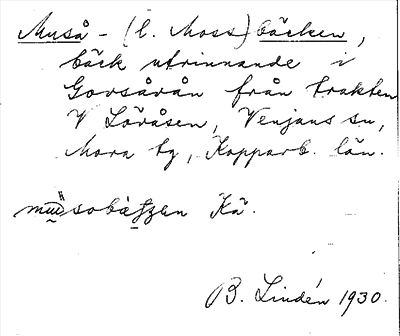 Muså - (l. Moss) bäcken,
bäck utrinnande i
Gorsårån från trakten
V Lövåsen, Venjans sn,
Mora tg, Kopparb. län.
Kä.
B. Lindén 1930.